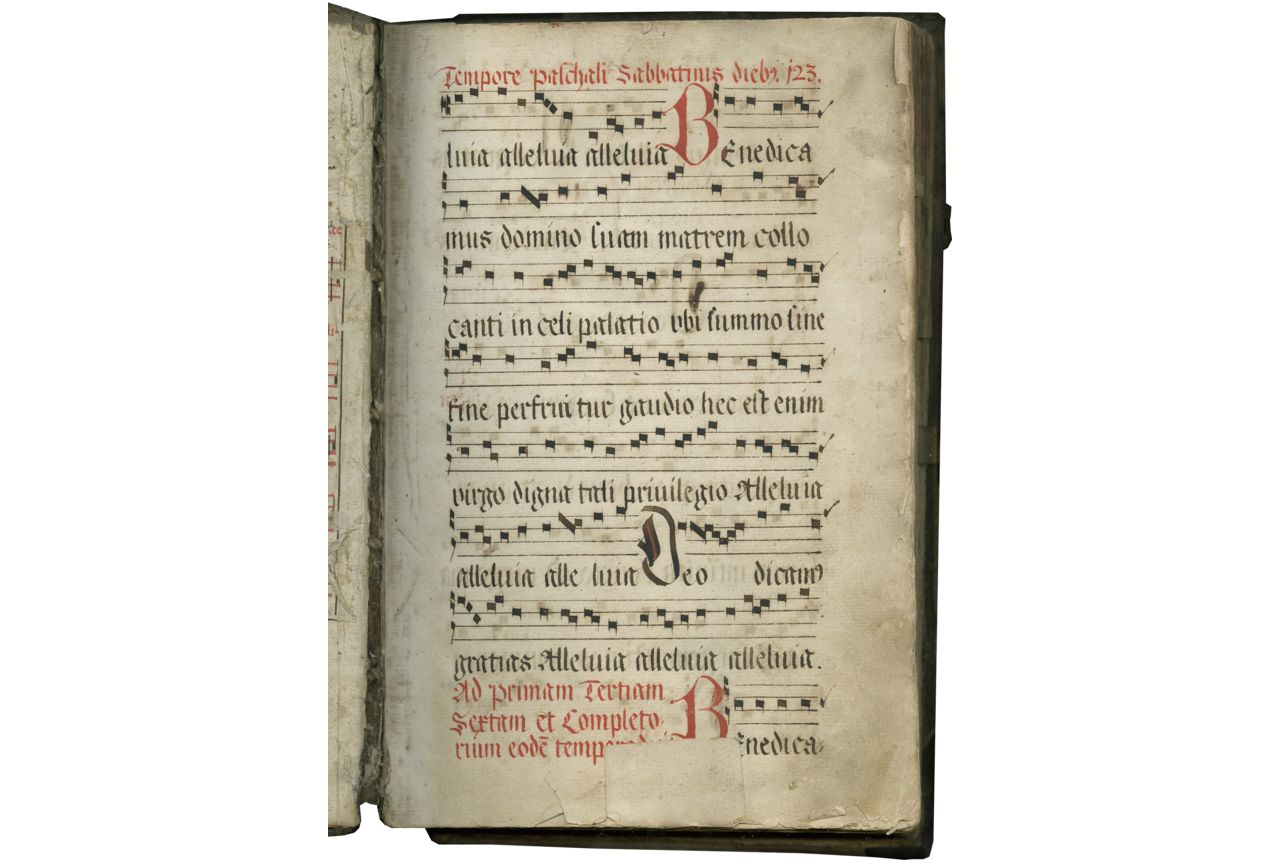 Tempore paschali Sabbatinis dieb9. 123.
luia alleluia alleluia BEnedica
mus domino suam matrem collo
canti in celi palatio vbi summo sine
fine perfrui tur gaudio hec est enim
virgo digna tali priuilegio Alleluia
alleluia alle luia Deo dicam9
gratias Alleluia alleluia alleluia.
Ad primam Tertiam
Sextam et Completo-
rium eodē BEnedica-